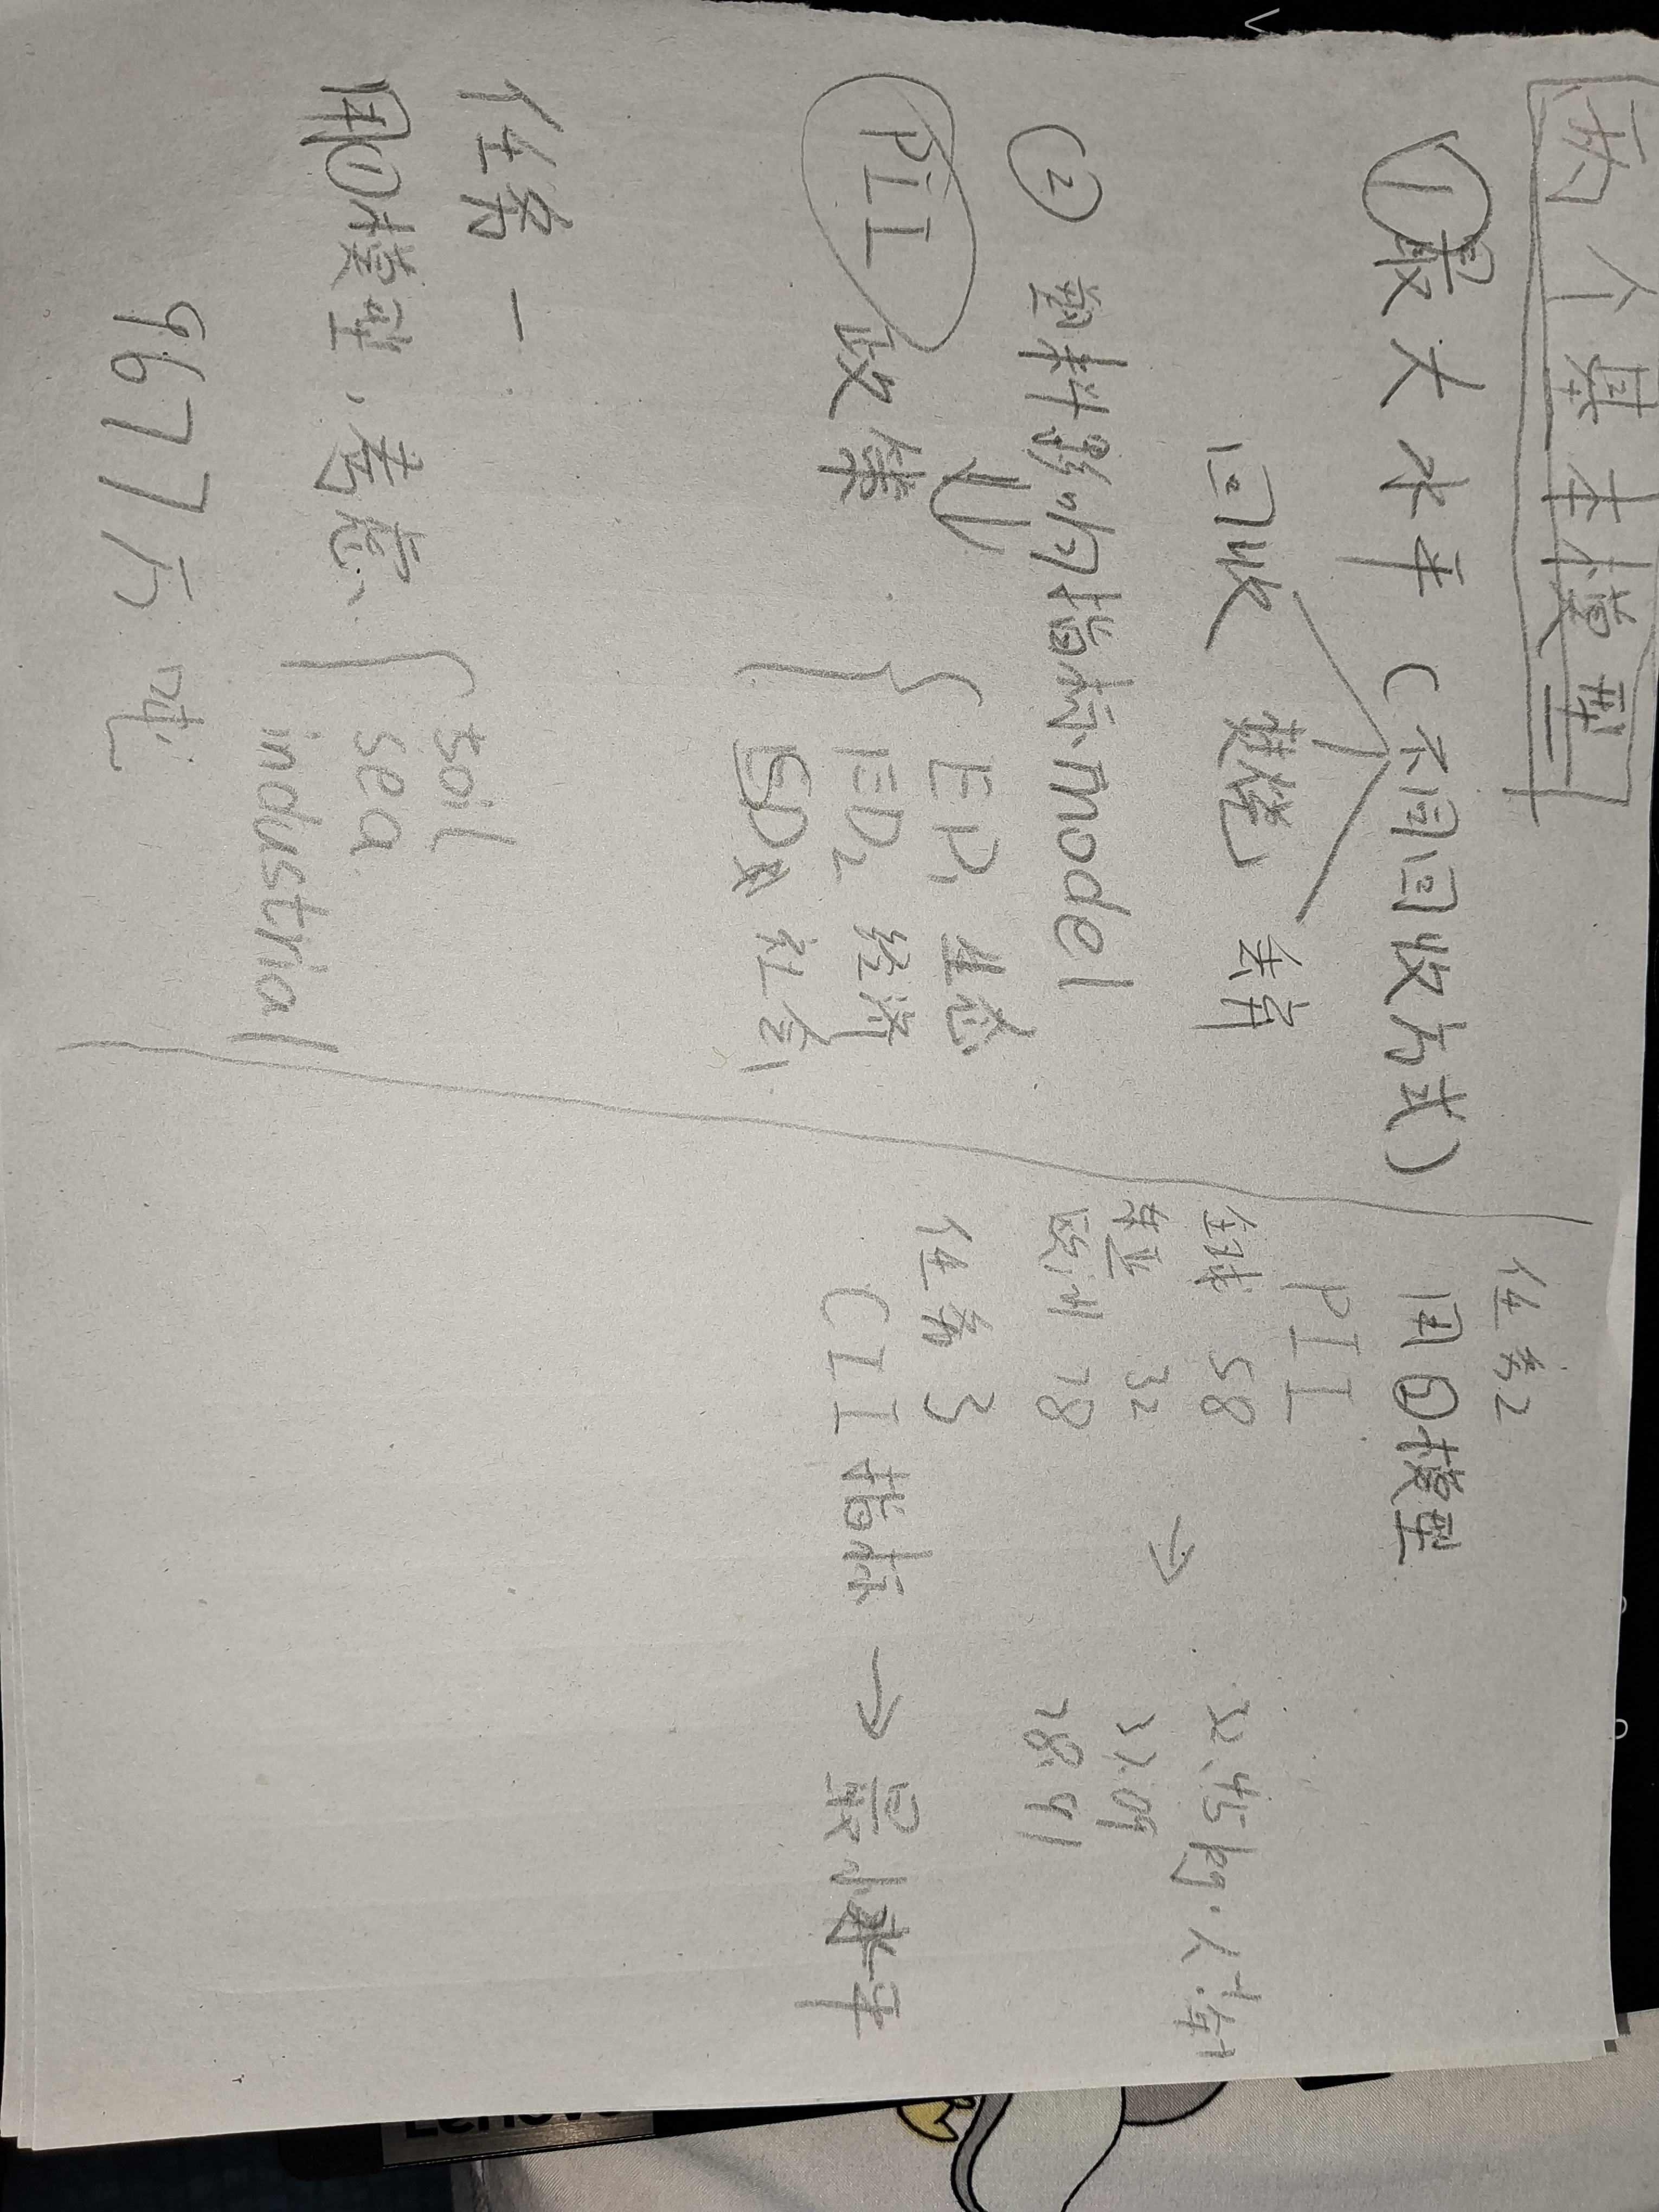 两个基本模型
①最大水平（不同回收方式）
回收 焚烧 丢弃
② 塑料影响指标model
PII 政策
EP1 生态
ED2 经济
SD 社会
任务一
用①模型，考虑
soil
sea
industrial
9677万吨
任务2
用②模型
PII
全球 58 → 32.45kg·人·年
东亚 32 37.09
欧洲 28 28.41
任务3
CII 指标 → 最小水平
Lenovo